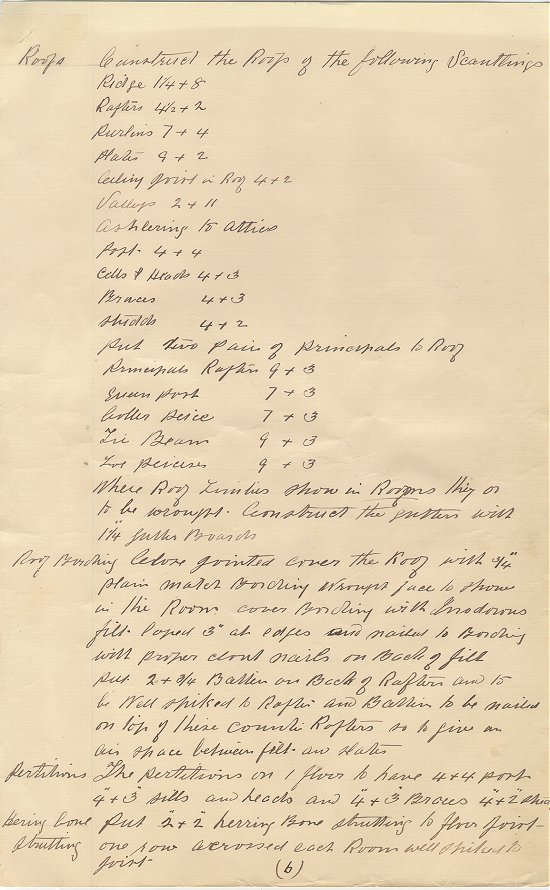 Roofs Construct the Roofs of the following Scantlings
Ridge 1¼ + 8
Rafters 4½ + 2
Purlins 7 + 4
Plates 9 + 2
Ceiling joist in Roof 4 + 2
Valleys 2 + 11
Ashlering to attics
Post 4 + 4
Cells & Heads 4 + 3
Braces 4 + 3
Studds 4 + 2
Put two Pair of Principals to Roof
Principals Rafters 9 + 3
Queen post 7 + 3
Coller peice 7 + 3
Tie Beam 9 + 3
Toe peices 9 + 3
Where Roof Timbers show in Rooms they or
to be wrought. Construct the gutters with
1¼ gutter Boards
Roof Bording Close jointed cover the Roof with ¾"
plain match Bording wrought face to show
in the Room cover Bording with Inodorous
filt. laped 3" at edges and nailed to Bording
with proper clout nails on Back of filt
put 2 + ¾ Batten on Back of Rafters and to
be well spiked to Rafter and Batten to be nailed
on top of these counter Rafters so to give an
air space between filt. and slates
Partitions The partitions on 1 floor to have 4 + 4 post
4" + 3" sills and heads and 4" + 3" Braces 4" + 2"
Hering bone Put 2" + 2" herring Bone strutting to floor joist
strutting one row acrossed each Room well spiked to
joist.
(6)